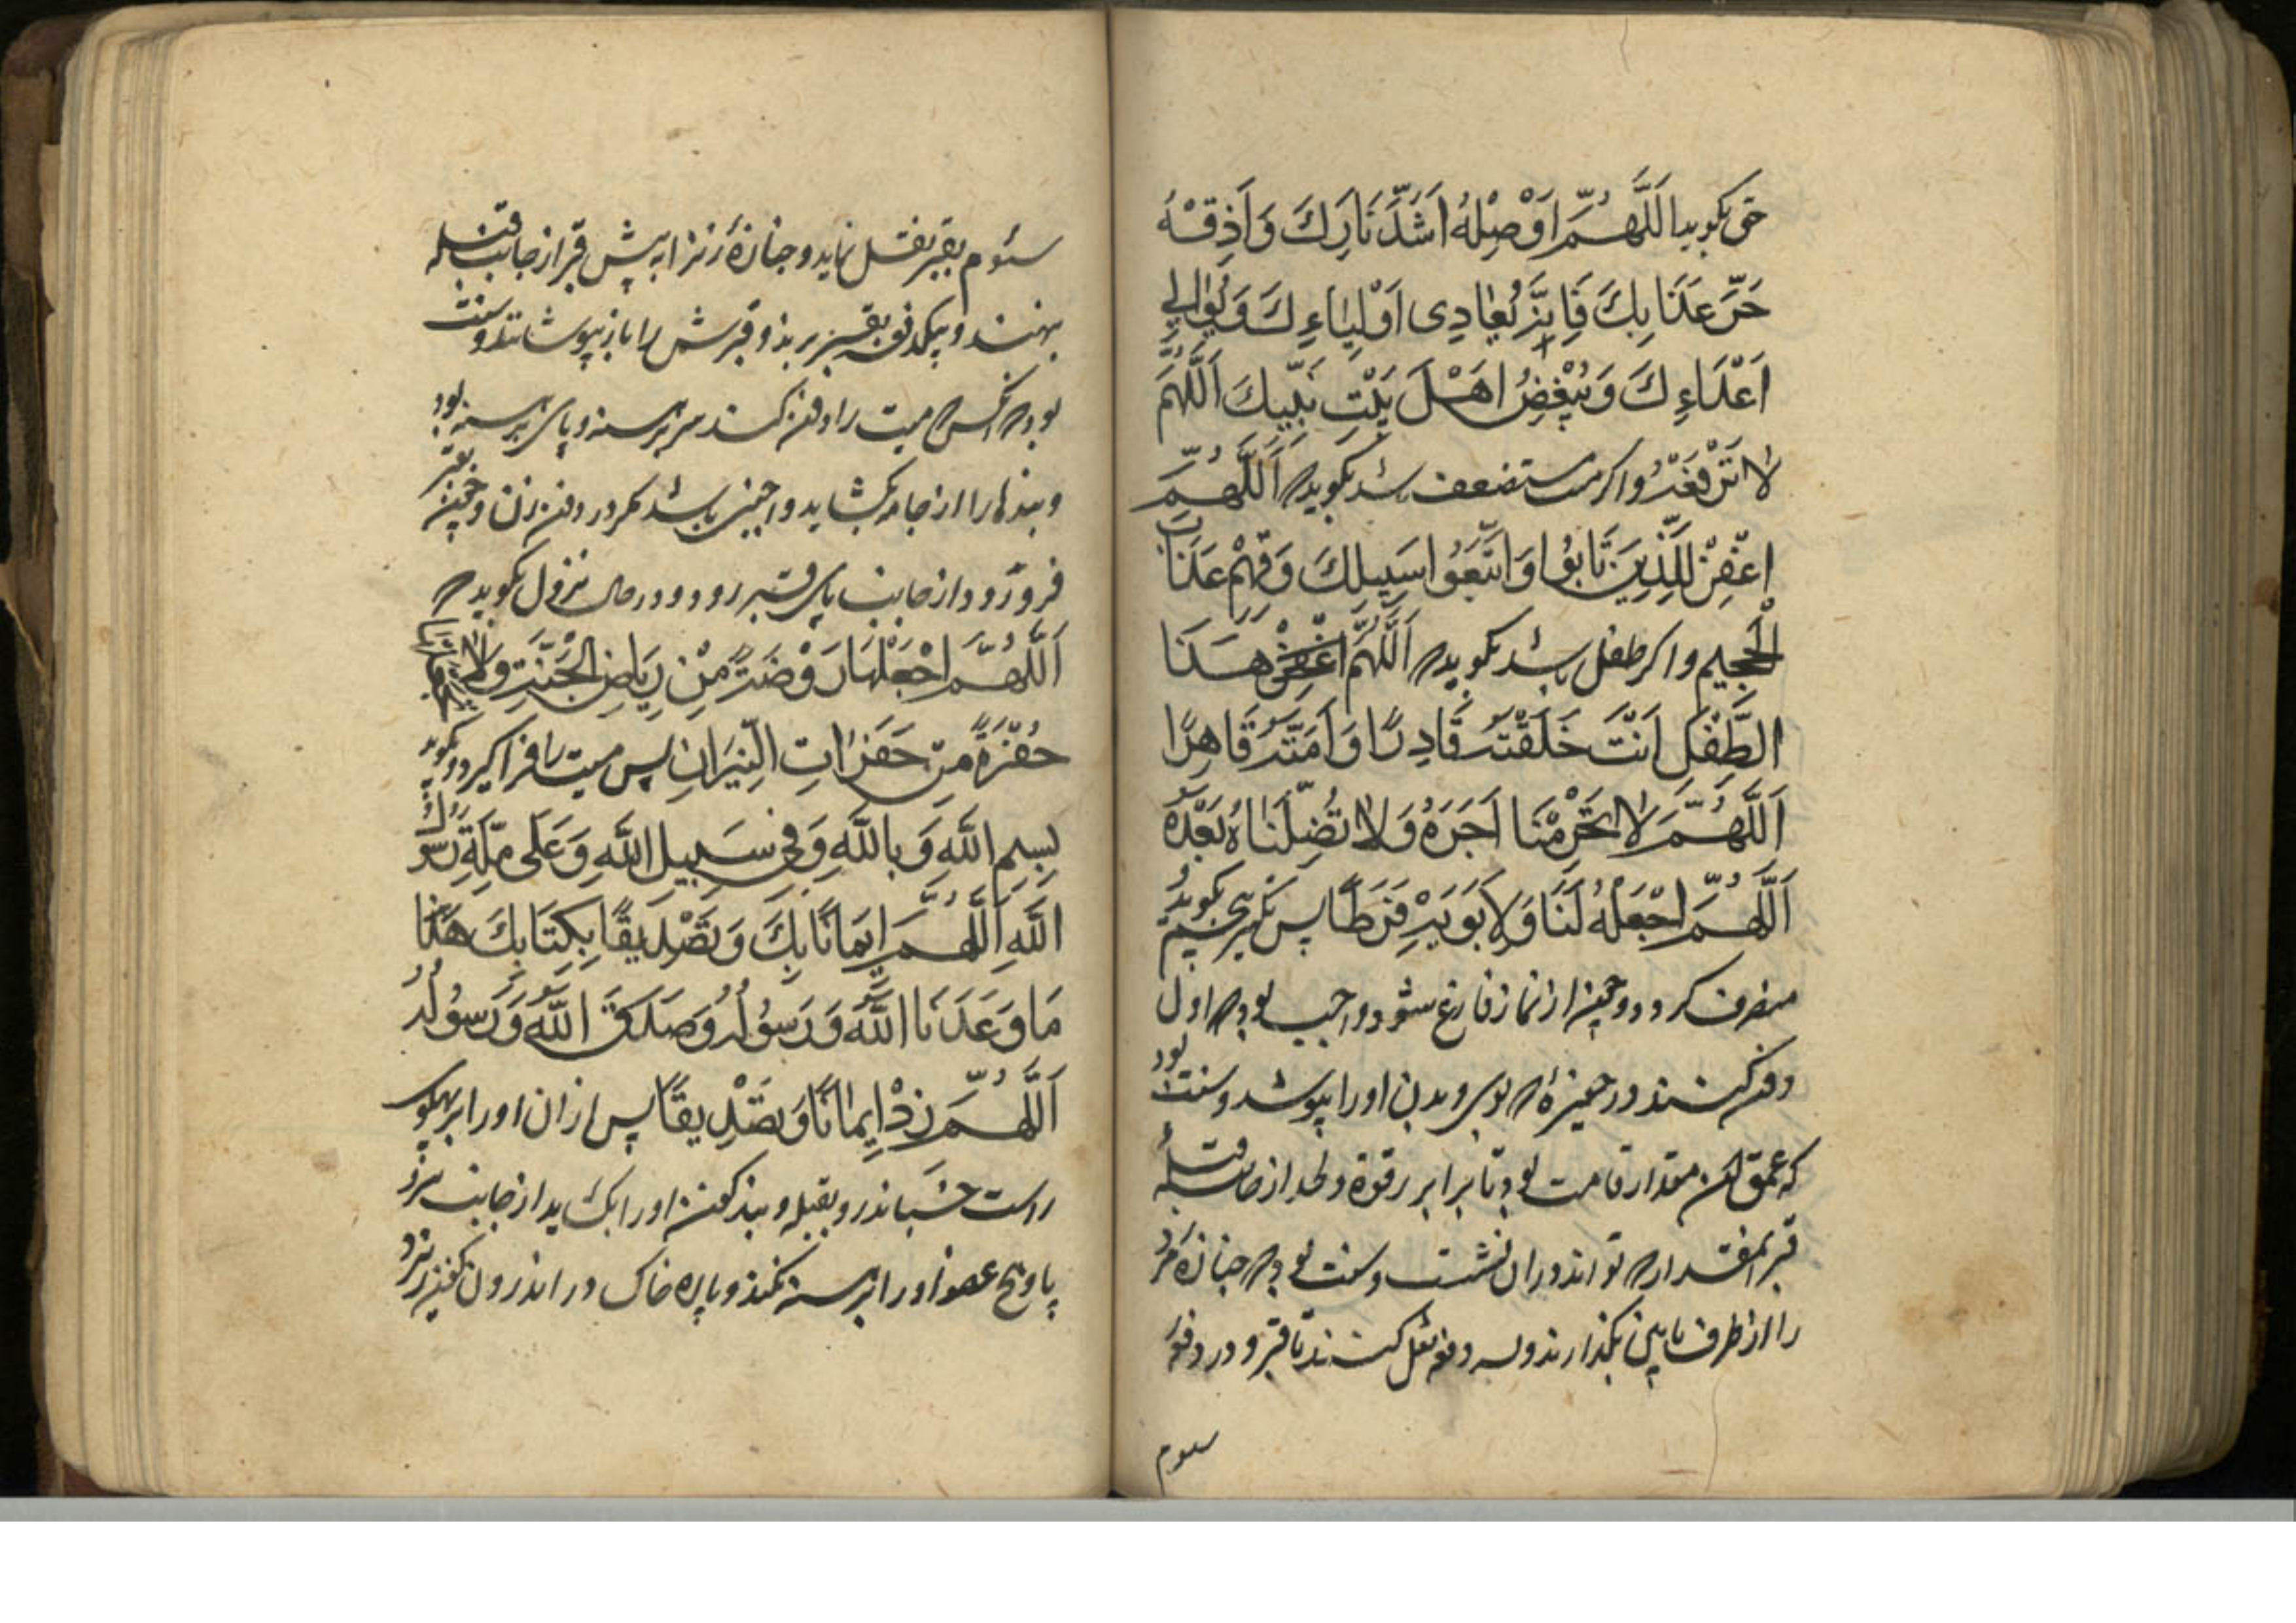 حق بگویید اَللّٰهُمَّ اَوْصِلْهُ اَشَدَّ نَارِكَ وَاَذِقْهُ
حَرَّ عَذَابِكَ فَاِنَّهُ يُعَادِى اَوْلِيَاءِكَ وَيُوَالِي
اَعْدَاءِكَ وَيُبْغِضُ اهْلَ بَيْتِ نَبِيِّكَ اَللّٰهُمَّ
لاٰ تَرْفَعْهُ واکر مستضعف باشد بکوید که اَللّٰهُمَّ
اغْفِرْ لِلَّذِينَ تَابُوا وَاتَّبَعُوا سَبِيلَكَ وَقِهِمْ عَذَابَ
الْجَحِيمِ واکر طفل باشد بکوید که اَللّٰهُمَّ هَذَا
الطِّفْلِ اَنْتَ خَلَقْتَهُ قَادِرًا وَاَمَتَّهُ قَاهِرًا
اَللّٰهُمَّ لاٰ تَحْرِمْنَا اَجَرَهُ وَلاٰ تُضِلَّنَا بَعْدَهُ
اَللّٰهُمَّ اجْعَلْهُ لَنَا وَلِاَبَوَيْهِ فَرَطًا پس تکبیر پنجم بکوید
منصرف کردد و چون از نماز فارغ شود واجب بود که اول
دفن کنند در حفیرهٔ که بوی و بدن او را بپوشد و سنت بود
که عمق آن مقدار قامت بود تا برابر ترقوة و لحد از جانب قبلهٔ
قبر بمقدار که تواند در ان نشست و سنت بود که جنازهٔ مرد
را از طرف پایین بگذارند و بسه دفعه نقل کنند تا قبر و در دفعهٔ
سوم
سئوم بقبر نقل نماید و جنازهٔ زنرا به پیش قبر از جانب قبله
بنهند و بیکدفعه بقبر برند و قبرش را باز بپوشانند و سنت
بود که انکس که میت را دفن کند سر برهنه و پای برهنه بود
و بندها را از جامه بکشاید و اجنبی باشد مکر در دفن زن و چون بقبر
فرو رود از جانب پای قبر رود و در حال نزول بکوید که
اَللّٰهُمَّ اجْعَلْهَا رَوْضَةً مِنْ رِيَاضِ الْجَنَّةِ وَلاٰ
حُفْرَةً مِن حَفَرٰاتِ النِّيرَانِ پس میت را فرا کیرد و بکوید
بِسْمِ اللهِ وَ بِاللهِ وَفِي سَبِيلِ اللهِ وَعَلَى مِلَّةِ رَسُولِ
اللهِ اَللّٰهُمَّ اِيمَانًا بِكَ وَتَصْدِيقًا بِكِتَابِكَ هَذَا
مَا وَعَدَنَا اللهُ وَرَسُولُهُ وَصَدَقَ اللهُ وَرَسُولُهُ
اَللّٰهُمَّ زِدْ اِيمَانًا وَتَصْدِيقًا پس از ان او را بر پهلوی
راست خسباند رو بقبله و بند کفن او را بکشاید از جانب سر و
پا و هیچ عضو او را برهنه نکند و پاره خاک در اندرون کفن